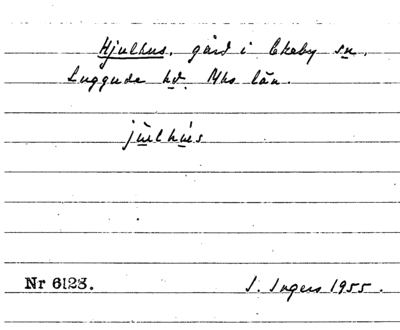 Hjulhus, gård i Ekeby sn,
Luggude hd. Mhs län.
jùlhùs
Nr 6128.
I. Ingers 1955.